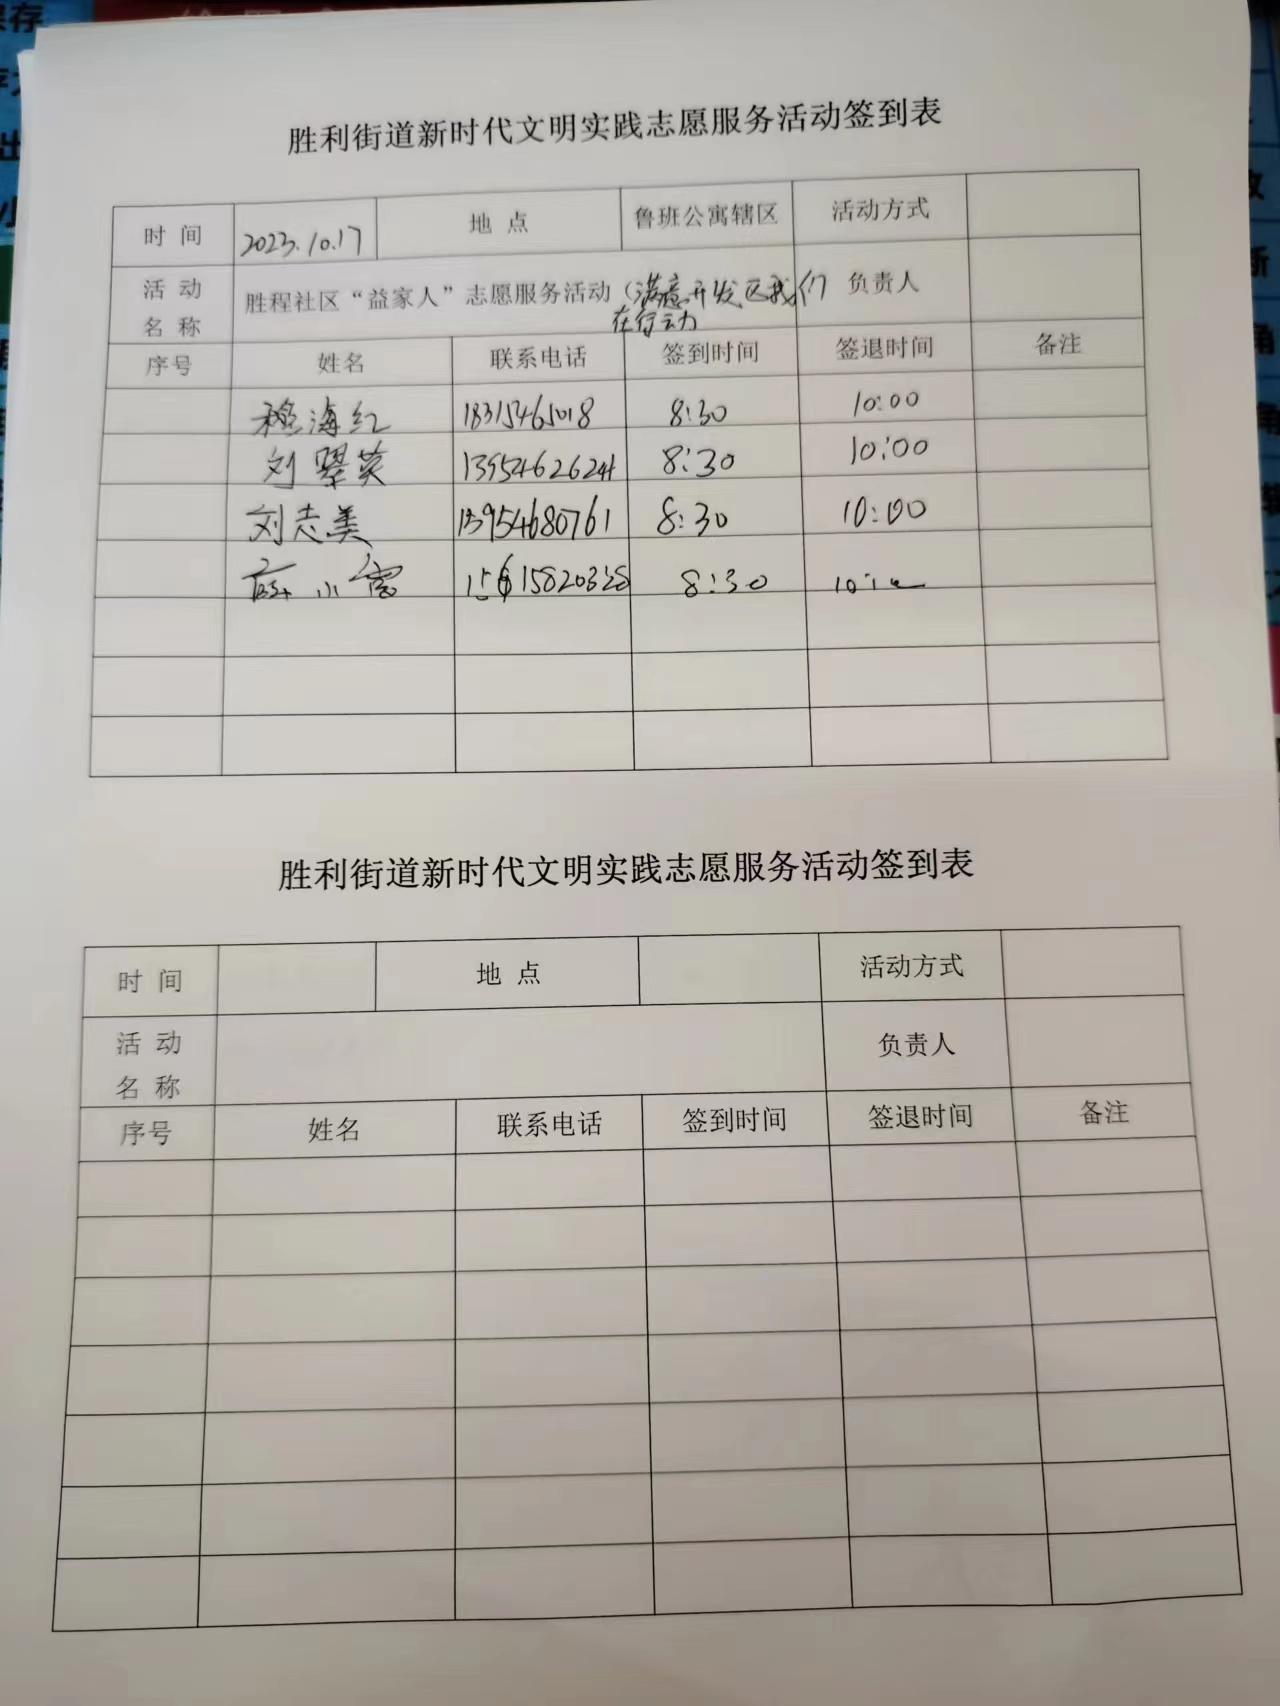 胜利街道新时代文明实践志愿服务活动签到表
时 间 2023.10.17 地 点 鲁班公寓辖区 活动方式
活 动 名 称 胜程社区“益家人”志愿服务活动（满意开发区我们 负责人
在行动
序号 姓名 联系电话 签到时间 签退时间 备注
穆海红 18315465018 8:30 10:00
刘翠英 13954626241 8:30 10:00
刘志美 13954680761 8:30 10:00
小雪 8:30
胜利街道新时代文明实践志愿服务活动签到表
时 间 地 点 活动方式
活 动 名 称 负责人
序号 姓名 联系电话 签到时间 签退时间 备注